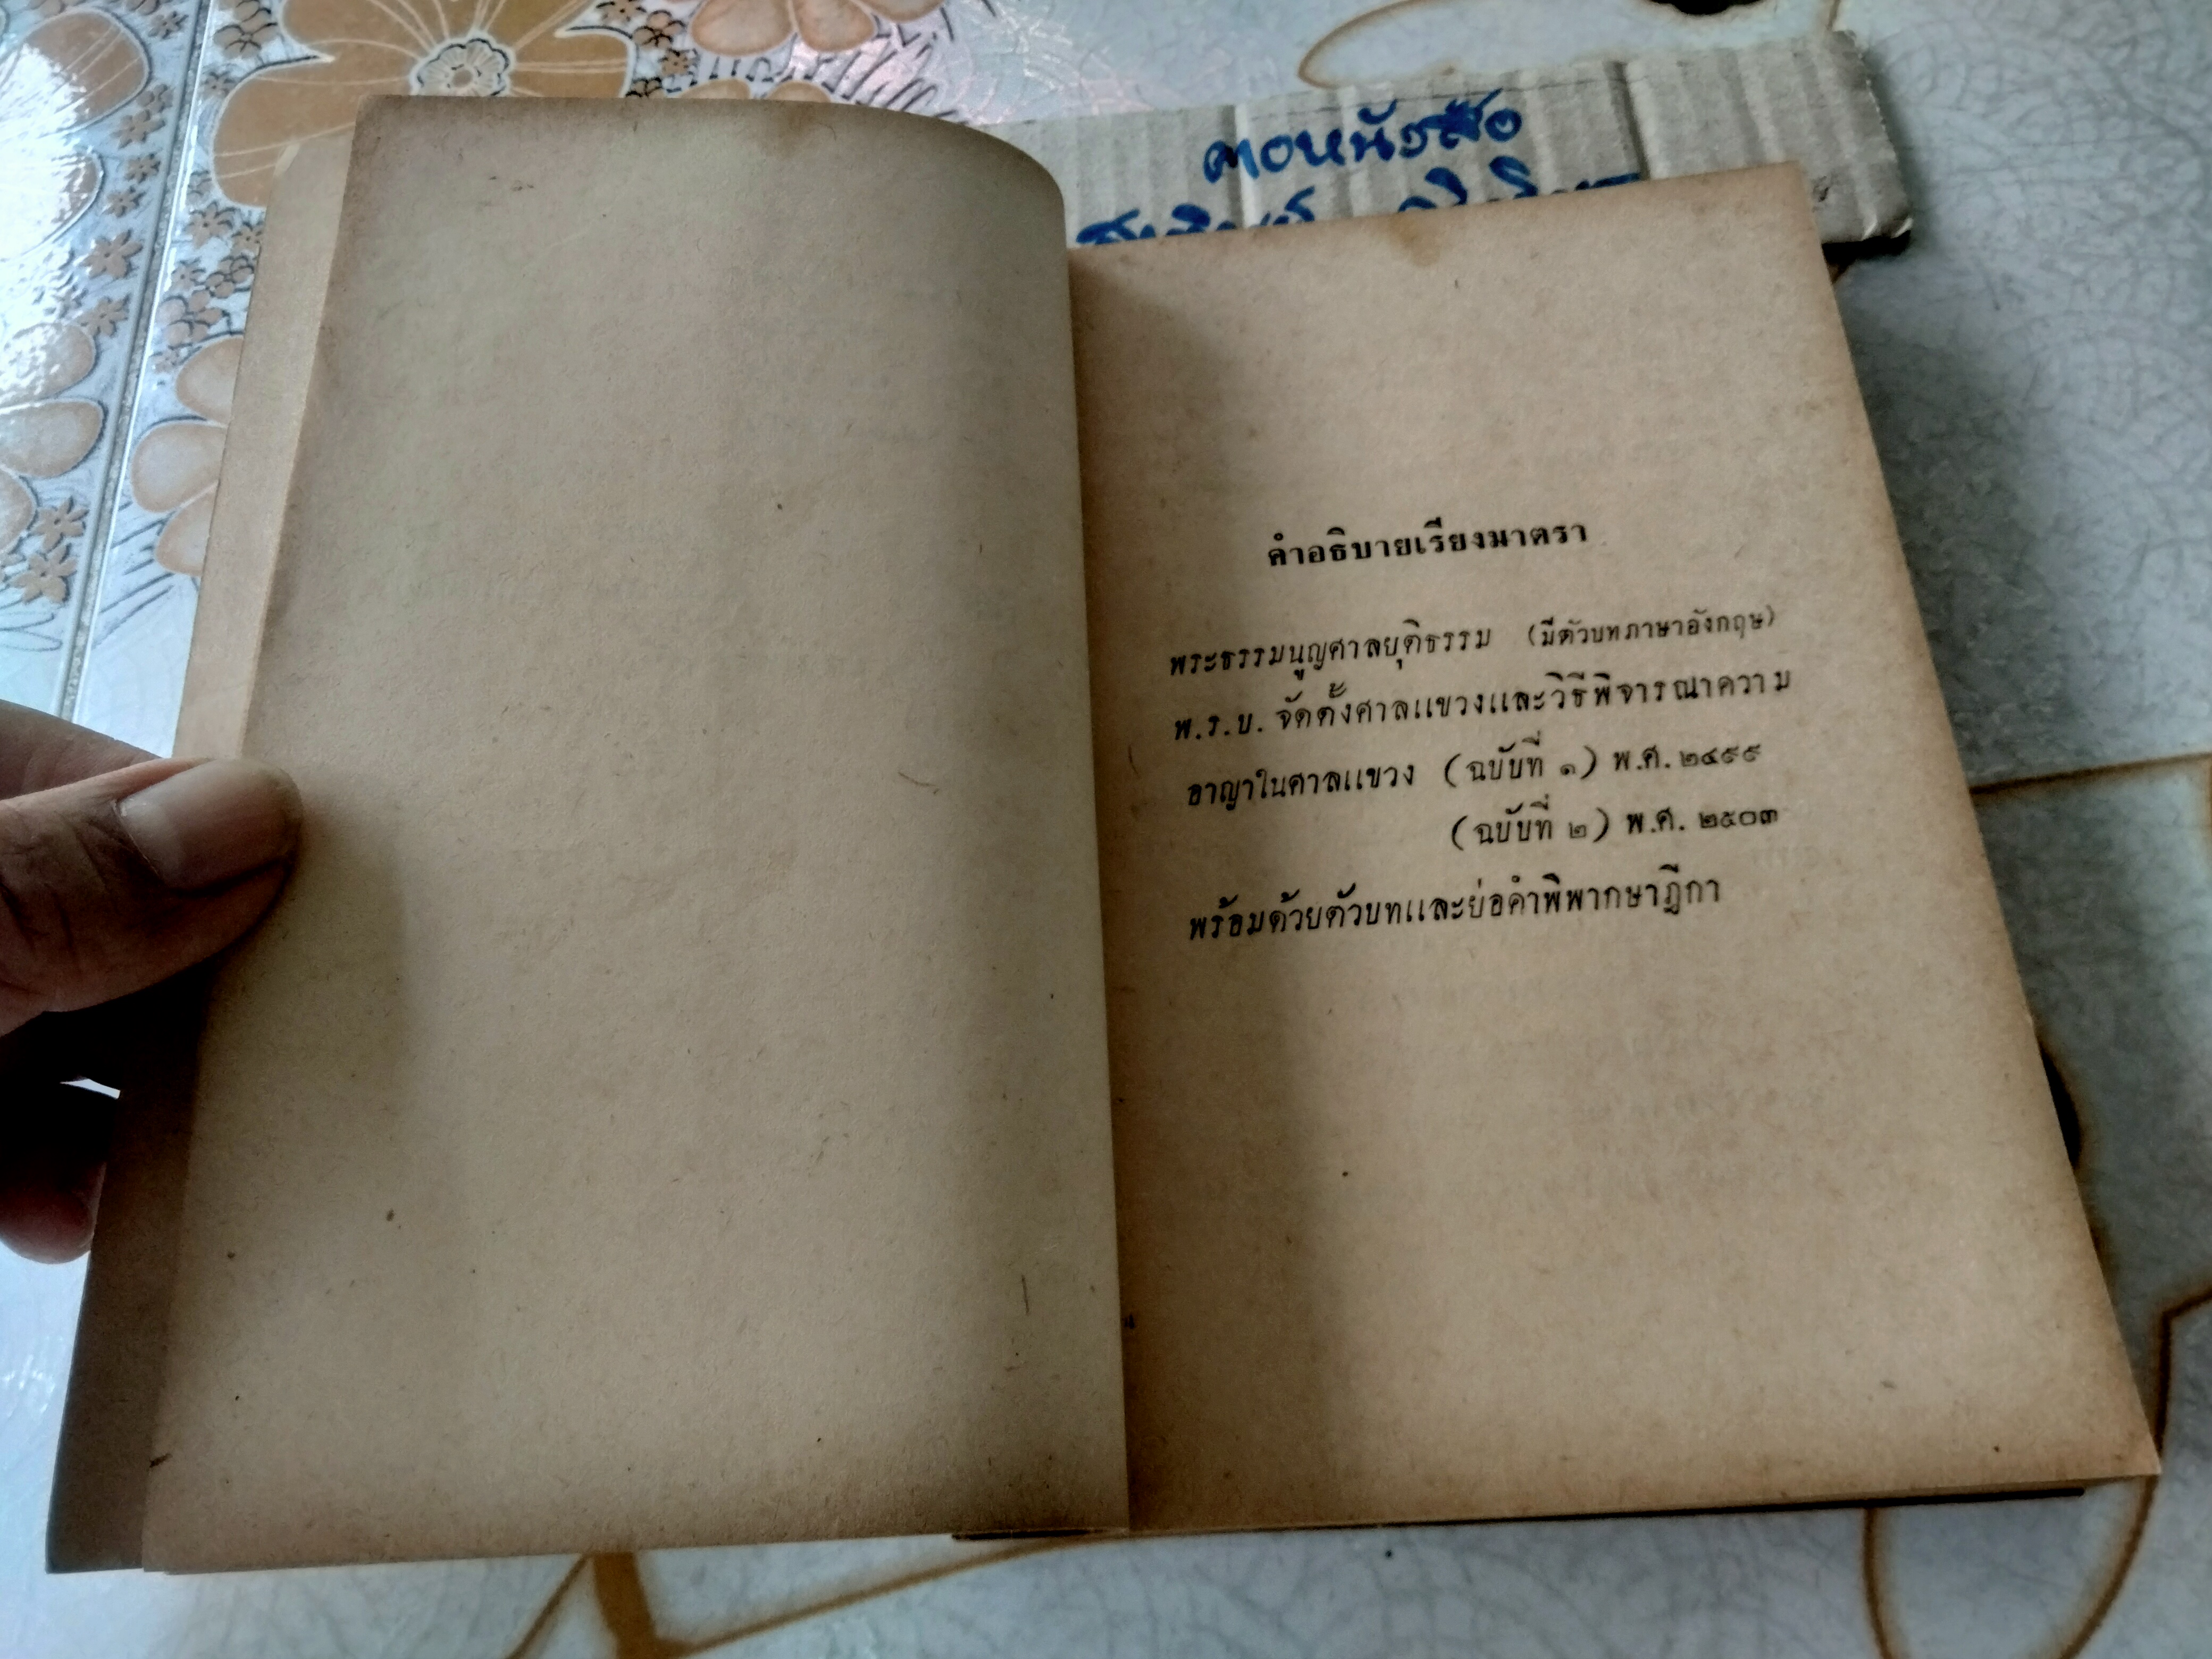 คอหนังสือ
คำอธิบายเรียงมาตรา
พระธรรมนูญศาลยุติธรรม (มีตัวบทภาษาอังกฤษ)
พ.ร.บ. จัดตั้งศาลแขวงและวิธีพิจารณาความ
อาญาในศาลแขวง (ฉบับที่ ๑) พ.ศ. ๒๔๙๙
(ฉบับที่ ๒) พ.ศ. ๒๕๐๓
พร้อมด้วยตัวบทและย่อคำพิพากษาฎีกา